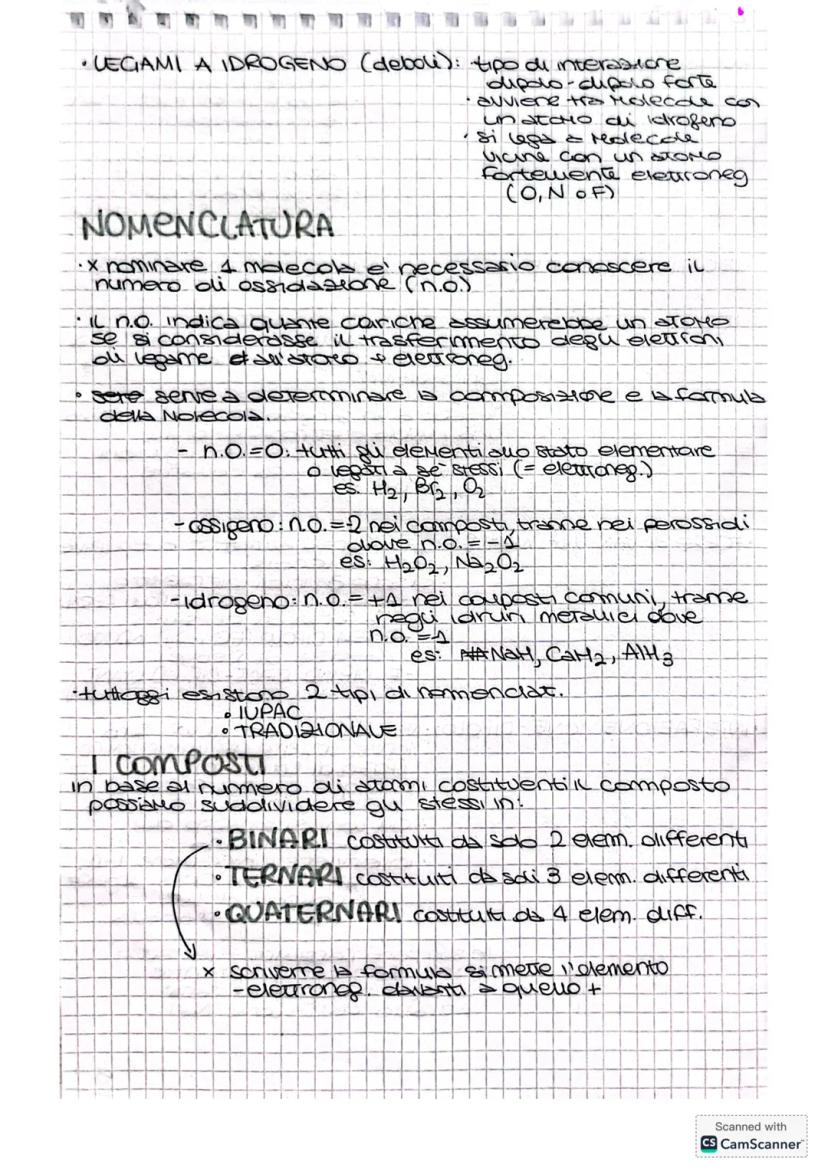 • LEGAMI A IDROGENO (deboli): tipo di interazione
dipolo-dipolo forte
• avviene tra molecole con
un atomo di idrogeno
• si lega a molecole
vicine con un atomo
fortemente elettroneg
(O, N o F)
NOMENCLATURA
• x nominare 1 molecola e' necessario conoscere il
numero di ossidazione (n.o.)
• IL n.o. indica quante cariche assumerebbe un atomo
se si considerasse il trasferimento degli elettroni
di legame dall'atomo + elettroneg.
• serve a determinare la composizione e la formula
della Molecola.
- n.o.=0: tutti gli elementi allo stato elementare
o legati a se' stessi (= elettroneg.)
es. H₂, Br₂, O₂
- ossigeno: n.o. =-2 nei composti, tranne nei perossidi
dove n.o. = -1
es: H₂O₂, Na₂O₂
- idrogeno: n.o. = +1 nei composti comuni, tranne
negli idruri metallici dove
n.o. =-1
es: NaH, CaH₂, AlH₃
• tutt'oggi esistono 2 tipi di nomenclat.
• IUPAC
• TRADIZIONALE
I COMPOSTI
in base al numero di atomi costituenti il composto
possiamo suddividere gli stessi in:
• BINARI costituiti da solo 2 elem. differenti
• TERNARI costituiti da soli 3 elem. differenti
• QUATERNARI costituiti da 4 elem. diff.
x scriverne la formula si mette l'elemento
-elettroneg. davanti a quello +
Scanned with
CS CamScanner